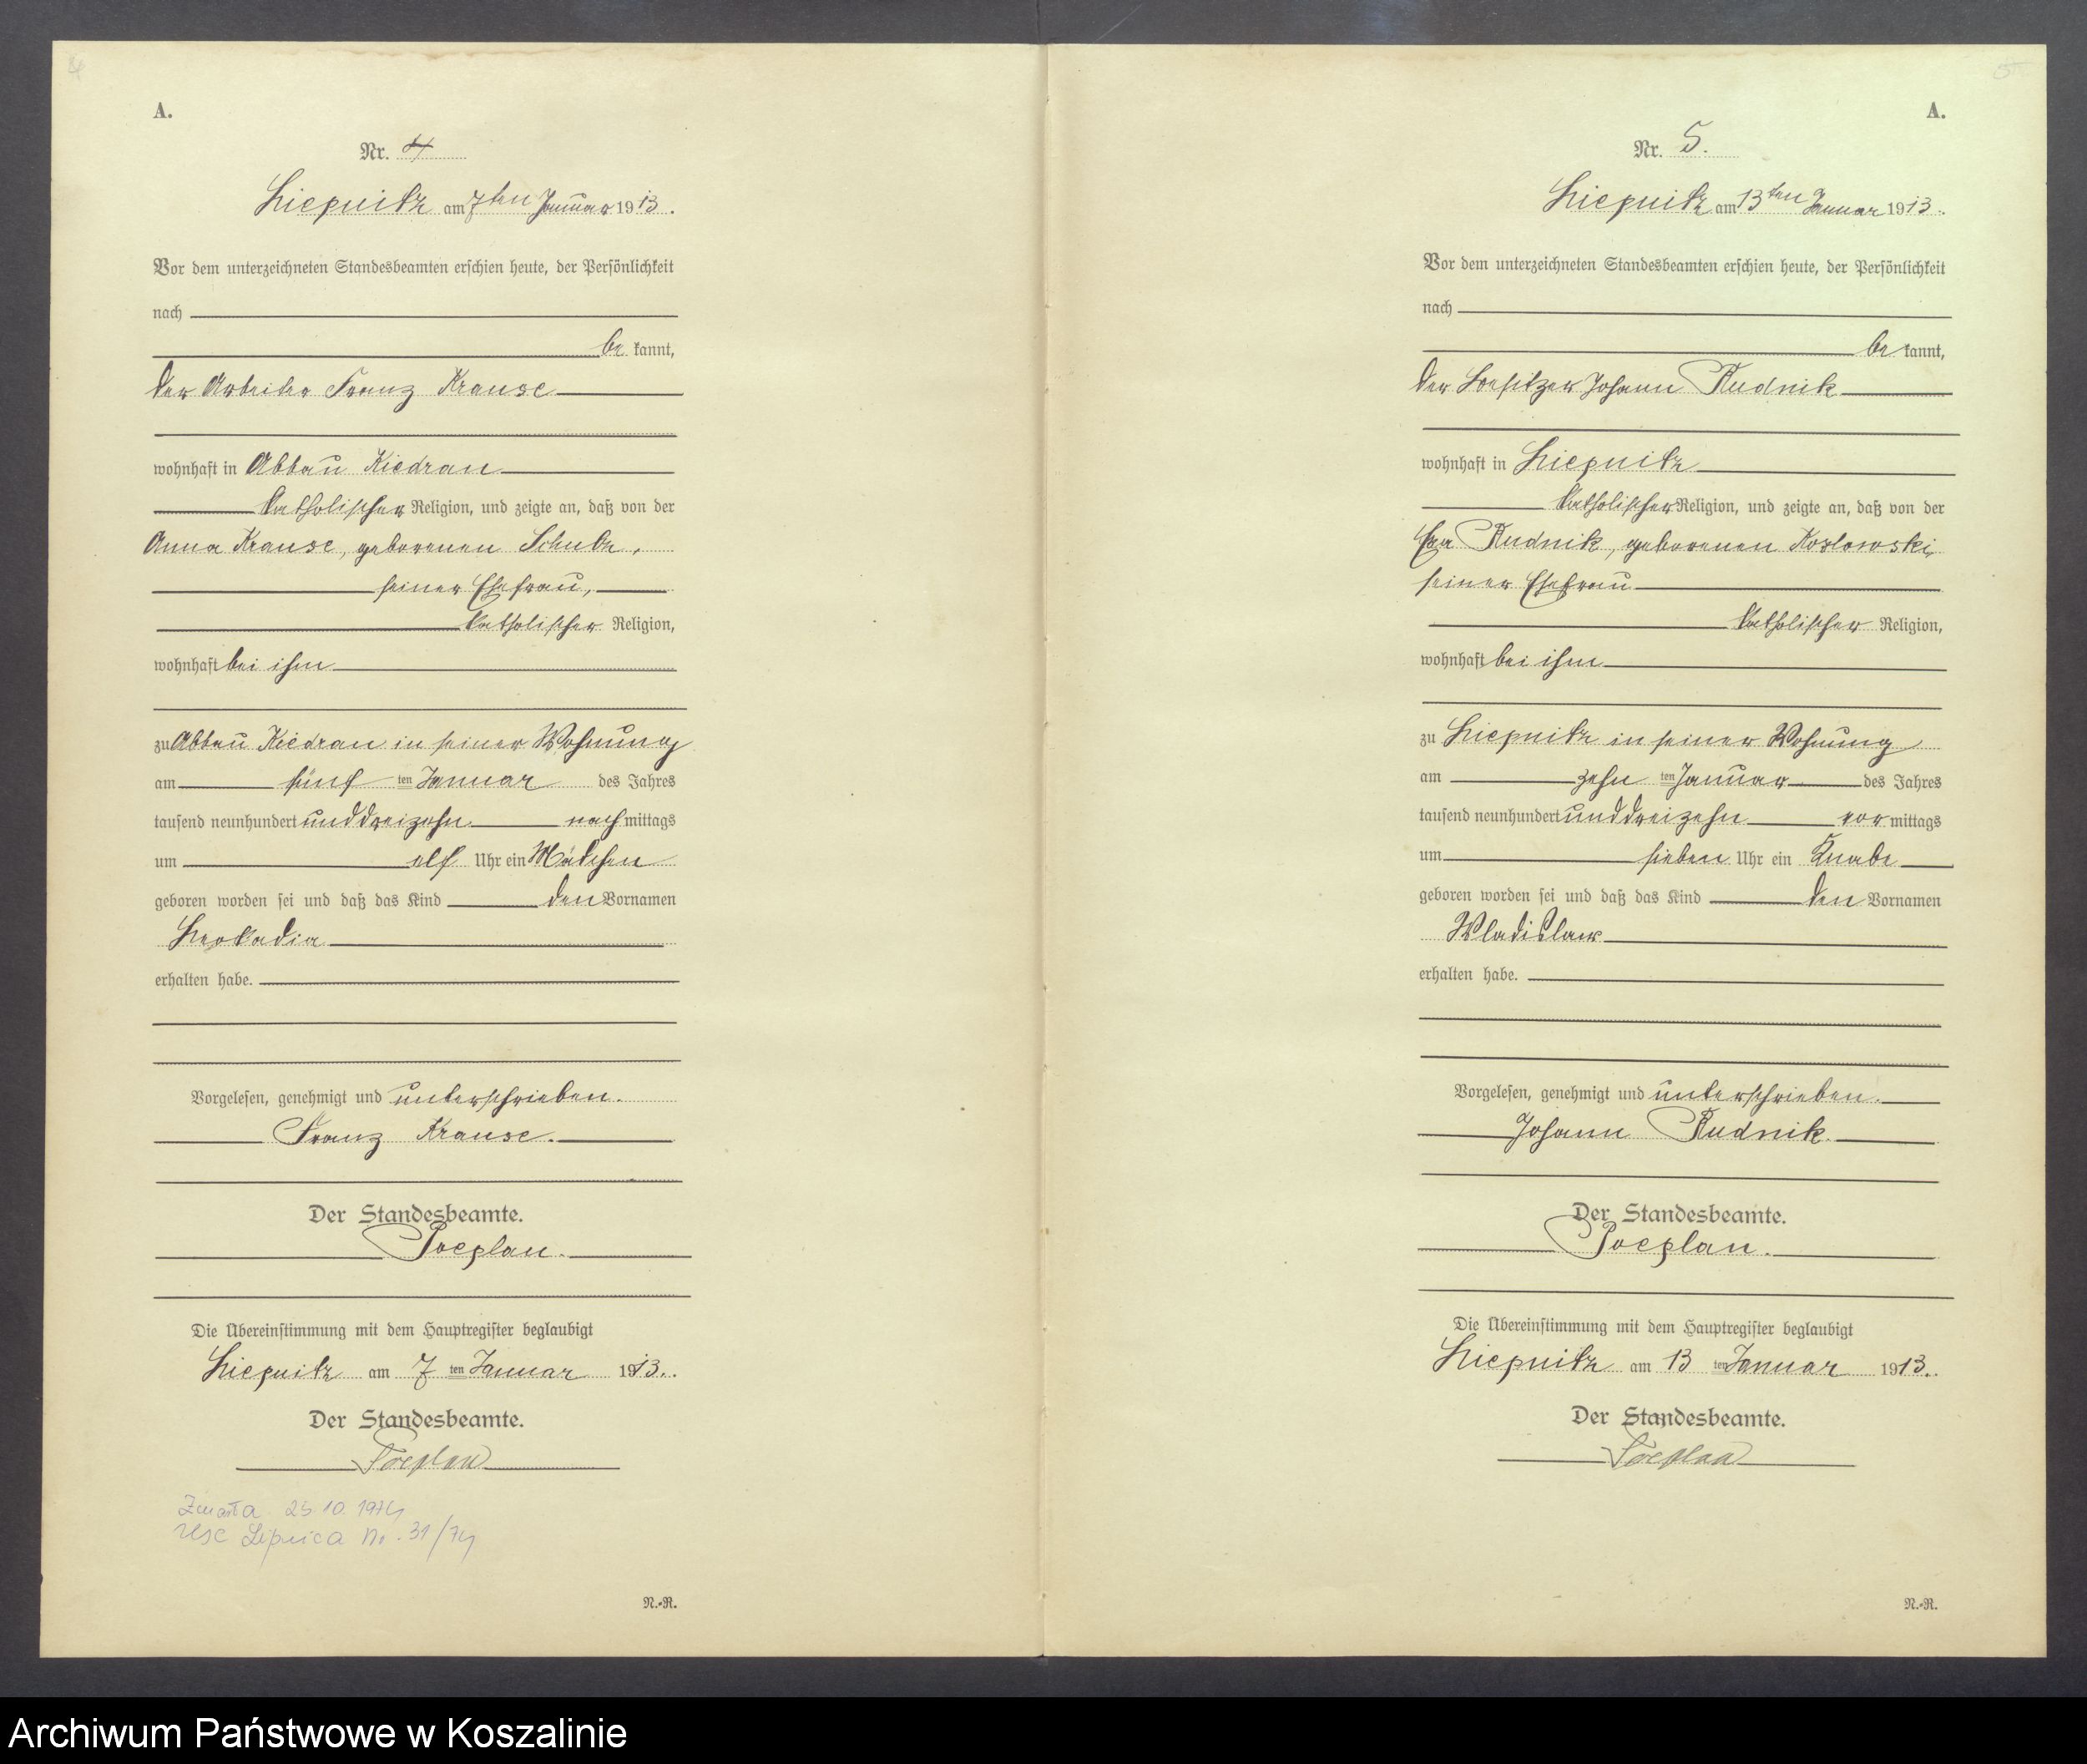 A.
Nr. 4
Liepnitz am 7ten Januar 1913.
Vor dem unterzeichneten Standesbeamten erschien heute, der Persönlichkeit
nach
be kannt,
der Arbeiter Franz Krause
wohnhaft in Abbau Kiedrau
katholischer Religion, und zeigte an, daß von der
Anna Krause, geborenen Schulz,
seiner Ehefrau,
katholischer Religion,
wohnhaft bei ihm
zu Abbau Kiedrau in seiner Wohnung
am fünf ten Januar des Jahres
tausend neunhundert unddreizehn nach mittags
um elf Uhr ein Mädchen
geboren worden sei und daß das Kind den Vornamen
Leokadia
erhalten habe.
Vorgelesen, genehmigt und unterschrieben.
Franz Krause.
Der Standesbeamte.
Poeplau.
Die Übereinstimmung mit dem Hauptregister beglaubigt
Liepnitz am 7 ten Januar 1913.
Der Standesbeamte.
Poeplau
Zmarła 10. 1974
USC Lipnica Nr. 31/74
N.-R.
A.
Nr. 5.
Liepnitz am 13ten Januar 1913.
Vor dem unterzeichneten Standesbeamten erschien heute, der Persönlichkeit
nach
be kannt,
der Besitzer Johann Rudnik
wohnhaft in Liepnitz
katholischer Religion, und zeigte an, daß von der
Eva Rudnik, geborenen Kozlowski,
seiner Ehefrau
katholischer Religion,
wohnhaft bei ihm
zu Liepnitz in seiner Wohnung
am zehn ten Januar des Jahres
tausend neunhundert unddreizehn vor mittags
um sieben Uhr ein Knabe
geboren worden sei und daß das Kind den Vornamen
Wladislaw
erhalten habe.
Vorgelesen, genehmigt und unterschrieben.
Johann Rudnik.
Der Standesbeamte.
Poeplau.
Die Übereinstimmung mit dem Hauptregister beglaubigt
Liepnitz am 13 ten Januar 1913.
Der Standesbeamte.
Poeplau
N.-R.
Archiwum Państwowe w Koszalinie